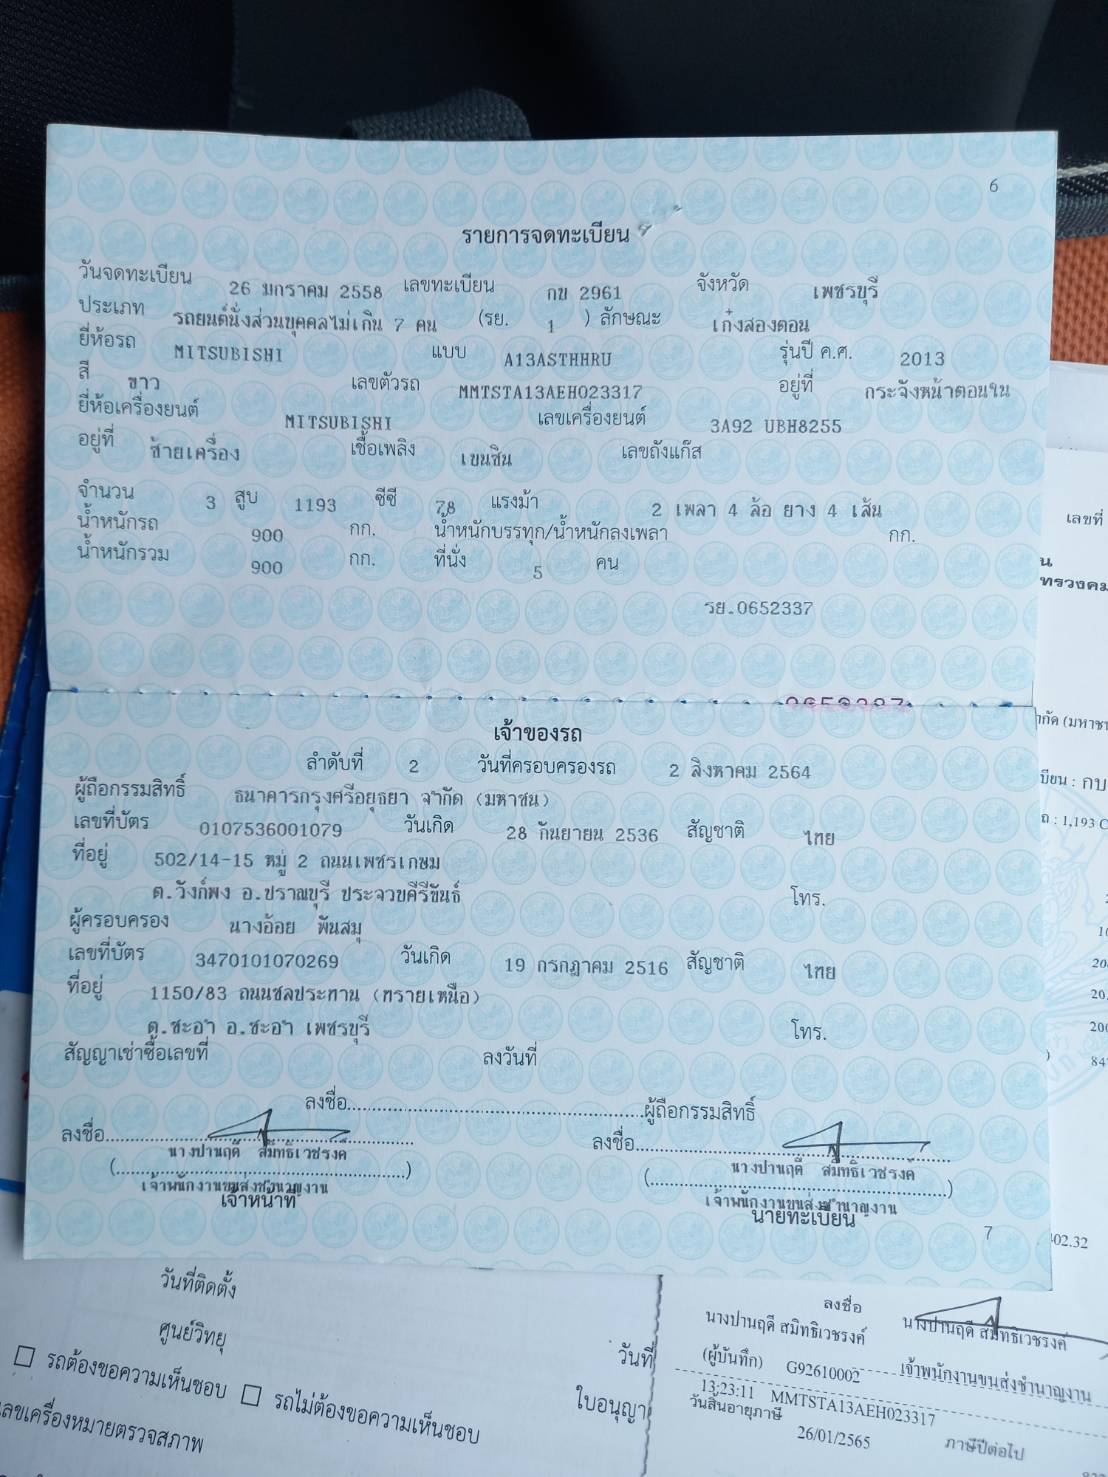 6
รายการจดทะเบียน
วันจดทะเบียน 26 มกราคม 2558 เลขทะเบียน กข 2961 จังหวัด เพชรบุรี
ประเภท รถยนต์นั่งส่วนบุคคลไม่เกิน 7 คน (รย. 1 ) ลักษณะ เก๋งสองตอน
ยี่ห้อรถ MITSUBISHI แบบ A13ASTHHRU รุ่นปี ค.ศ. 2013
สี ขาว เลขตัวรถ MMTSTA13AEH023317 อยู่ที่ กระจังหน้าตอนใน
ยี่ห้อเครื่องยนต์ MITSUBISHI เลขเครื่องยนต์ 3A92 UBH8255
อยู่ที่ ซ้ายเครื่อง เชื้อเพลิง เบนซิน เลขถังแก๊ส
จำนวน 3 สูบ 1193 ซีซี 78 แรงม้า 2 เพลา 4 ล้อ ยาง 4 เส้น
น้ำหนักรถ 900 กก. น้ำหนักบรรทุก/น้ำหนักลงเพลา กก.
น้ำหนักรวม 900 กก. ที่นั่ง 5 คน
รย.0652337
เจ้าของรถ
ลำดับที่ 2 วันที่ครอบครองรถ 2 สิงหาคม 2564
ผู้ถือกรรมสิทธิ์ ธนาคารกรุงศรีอยุธยา จำกัด (มหาชน)
เลขที่บัตร 0107536001079 วันเกิด 28 กันยายน 2536 สัญชาติ ไทย
ที่อยู่ 502/14-15 หมู่ 2 ถนนเพชรเกษม
ต.วังก์พง อ.ปราณบุรี ประจวบคีรีขันธ์ โทร.
ผู้ครอบครอง นางอ้อย พันสมุ
เลขที่บัตร 3470101070269 วันเกิด 19 กรกฎาคม 2516 สัญชาติ ไทย
ที่อยู่ 1150/83 ถนนชลประทาน (ทรายเหนือ)
ต.ชะอำ อ.ชะอำ เพชรบุรี โทร.
สัญญาเช่าซื้อเลขที่ ลงวันที่
ลงชื่อ............ผู้ถือกรรมสิทธิ์
ลงชื่อ............ ลงชื่อ............
(นางปานฤดี สมิทธิเวชรงค์) (นางปานฤดี สมิทธิเวชรงค์)
เจ้าพนักงานขนส่งชำนาญงาน เจ้าพนักงานขนส่งชำนาญงาน
เจ้าหน้าที่ นายทะเบียน
7
เลขที่
น
ทรวงคม
กัด (มหาชา
บียน : กบ
ถ : 1,193 C
402.32
วันที่ติดตั้ง
ศูนย์วิทยุ
รถต้องขอความเห็นชอบ รถไม่ต้องขอความเห็นชอบ
ลขเครื่องหมายตรวจสภาพ
วันที่
ใบอนุญา
ลงชื่อ
นางปานฤดี สมิทธิเวชรงค์ นางปานฤดี สมิทธิเวชรงค์
(ผู้บันทึก) G92610002 เจ้าพนักงานขนส่งชำนาญงาน
13:23:11 MMTSTA13AEH023317
วันสิ้นอายุภาษี 26/01/2565 ภาษีปีต่อไป